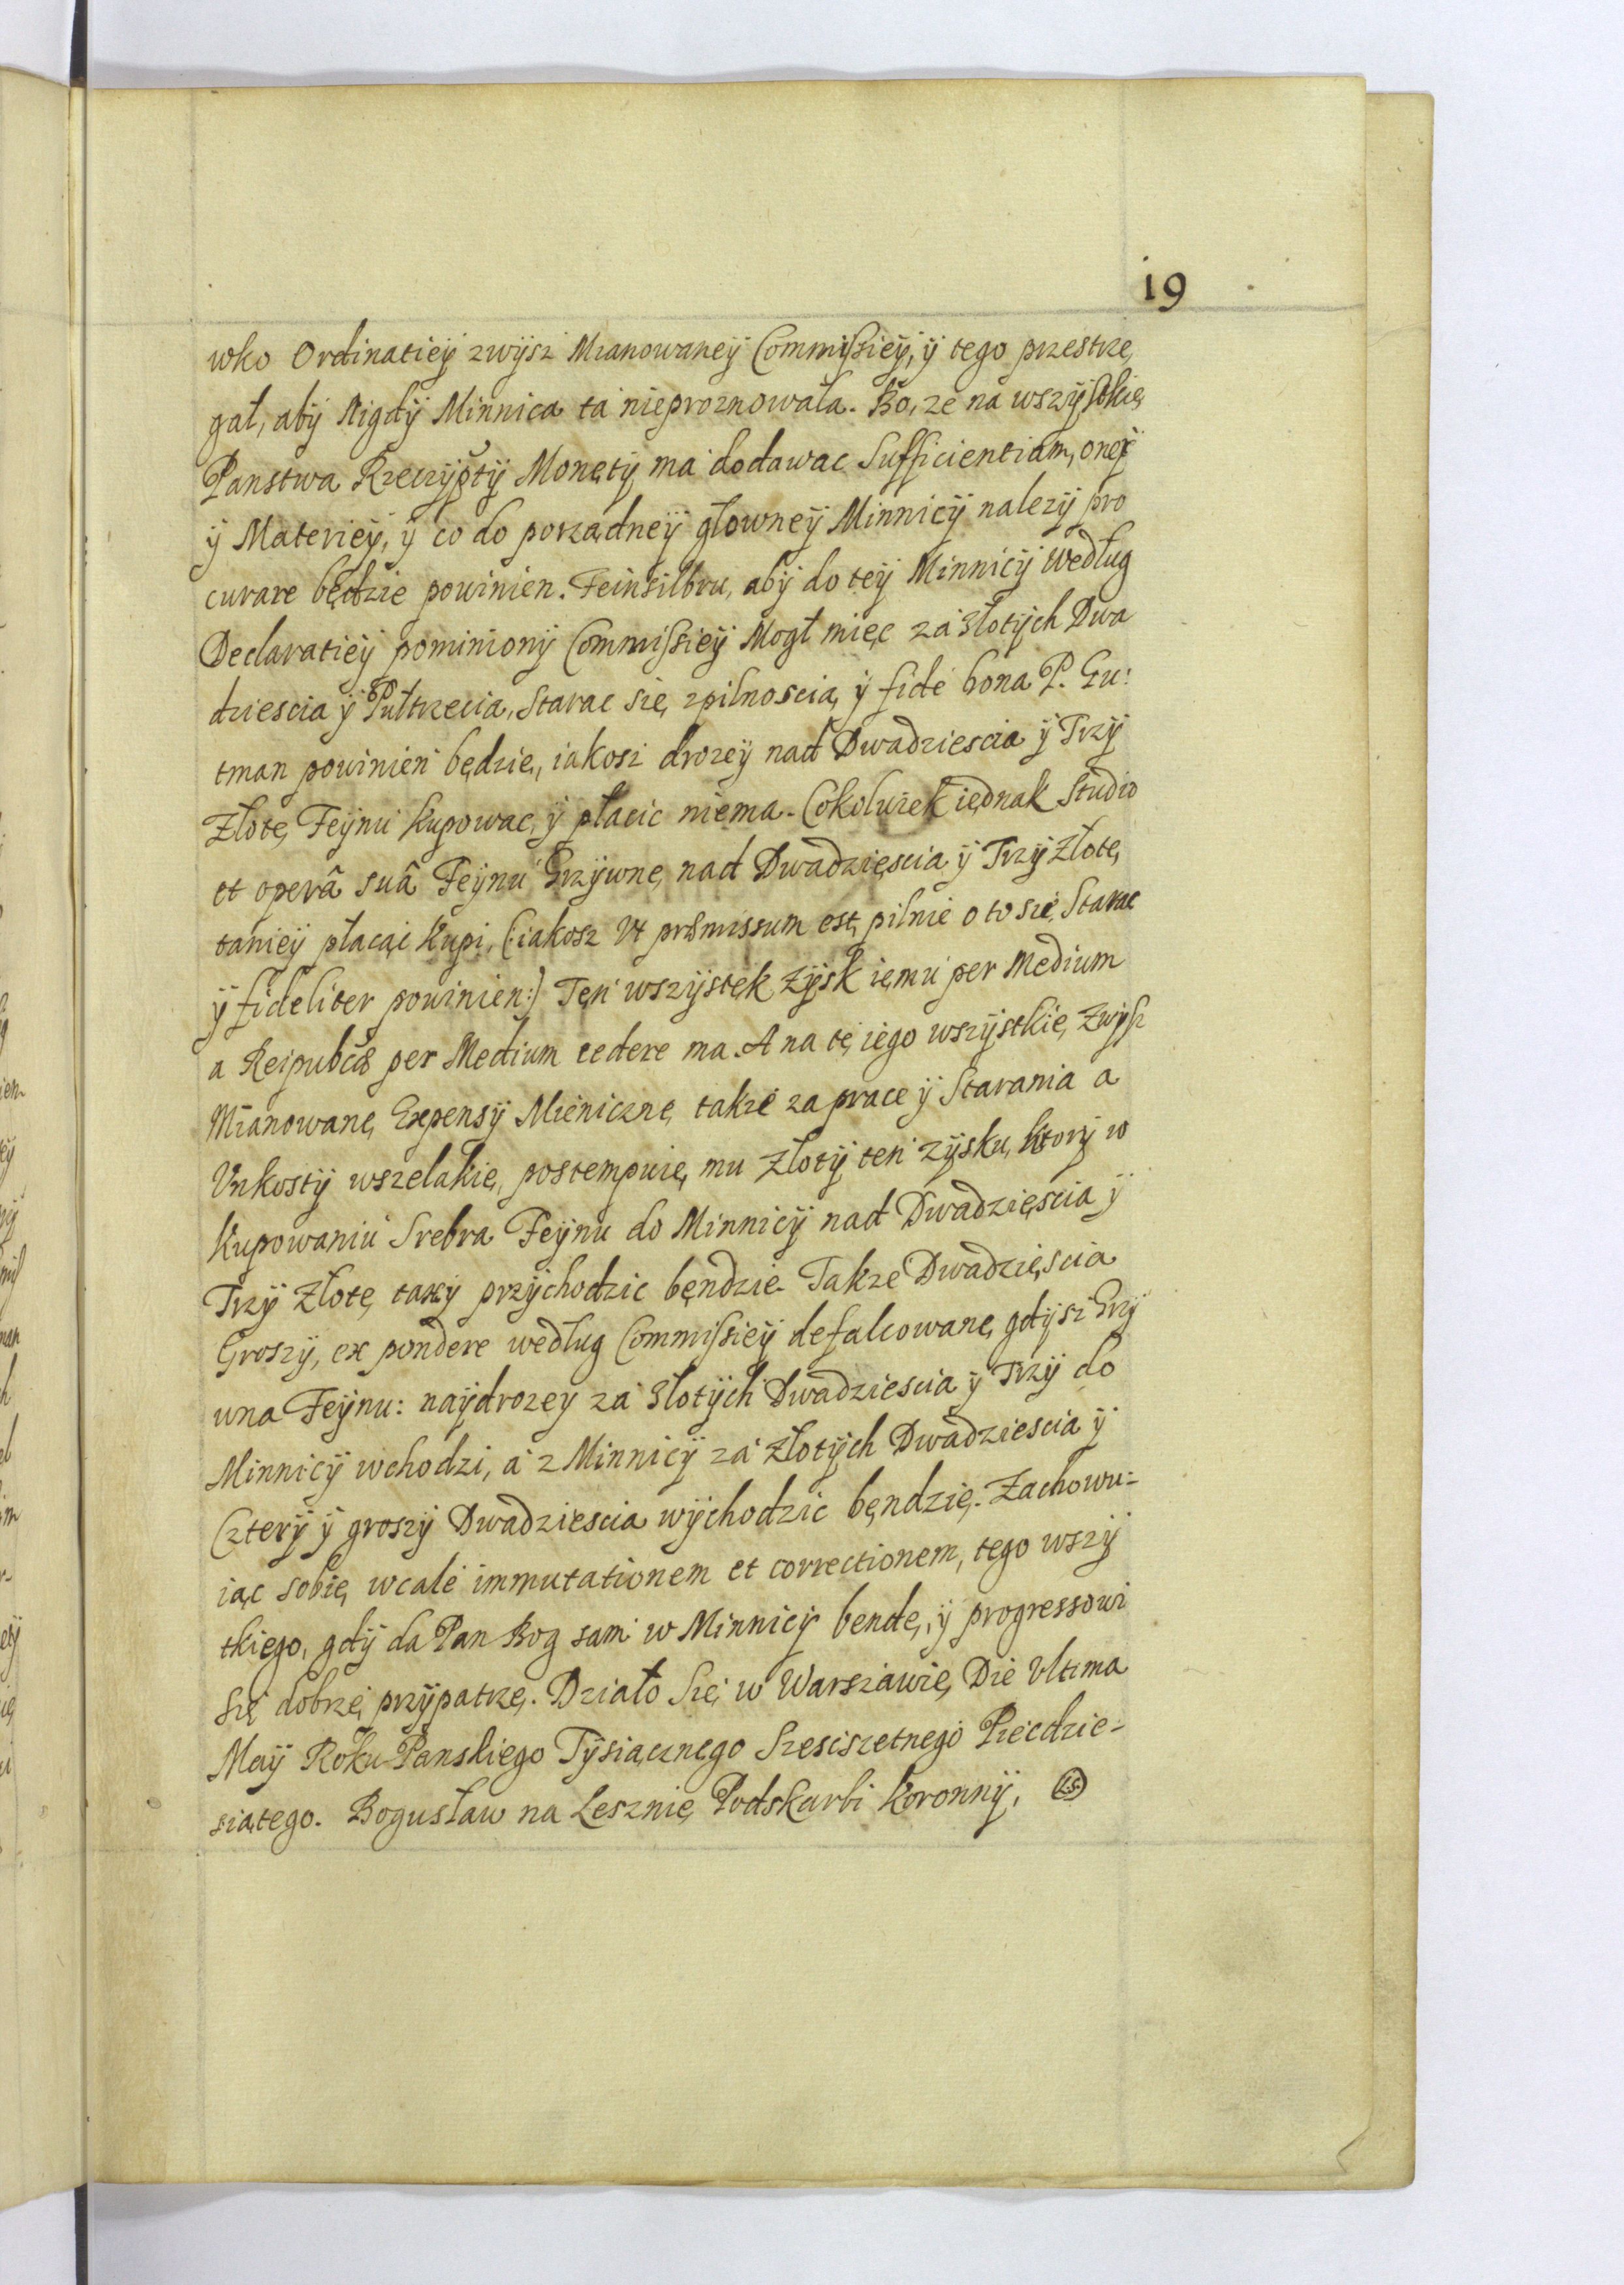 19
wko Ordinatiey zwysz Mianowaney Commissiey, y tego przestrze,
gał, aby Nigdy Minnica ta nieproznowała. Bo, ze na wszystkie,
Panstwa Rzeczyptÿ Monetÿ ma dodawac Sufficientiam, oneÿ
ÿ Materieÿ, ÿ co do porządneÿ głowneÿ Minnicÿ nalezÿ pro
curare będzie powinien. Feinsilbru, abÿ do teÿ Minnicÿ według
Declaratieÿ pominionÿ Commissieÿ Mogł mięc za Złotÿch Dwa
dziescia ÿ Pułtrzecia, Starac się, zpilnoscią, ÿ fide bona P. Gu:
tman powinien będzie, iakosz drozeÿ nad Dwadziescia ÿ Trzÿ
Złote, Feÿnu kupowac, ÿ płacic niema. Cokolwiek iednak Studio
et operâ suâ Feÿnu Grzÿwnę, nad Dwadziescia ÿ Trzÿ Złote,
tanieÿ płacąc kupi, (:iakosz Vt præmissum est, pilnie o to się, Starac
ÿ fideliter powinien:) Ten wszÿstek zÿsk iemu per Medium
a Reipubcæ per Medium cedere ma. A na te, iego wszÿstkie, zwÿsz
Mianowane, Expensÿ Mieniczne, takze za prace ÿ Starania a
Vnkostÿ wszelakie, postempuię, mu Złotÿ ten zÿsku, ktorÿ w
kupowaniu Srebra Feÿnu do Minnicÿ nad Dwadziescia ÿ
Trzÿ Złote, taxÿ przÿchodzic bęndzie. Takze Dwadziescia
Groszÿ, ex pondere według Commissieÿ defalcowane, gdÿsz Grzÿ
wna Feÿnu: naÿdrozey za Złotÿch Dwadziescia ÿ Trzÿ do
Minnicÿ wchodzi, a z Minnicÿ za Złotÿch Dwadziescia ÿ
Czterÿ ÿ groszÿ Dwadziescia wÿchodzic bęndzie. Zachowu:
iąc sobie, wcale immutationem et correctionem, tego wszÿ
tkiego, gdÿ da Pan Bog sam w Minnicÿ bende, ÿ progressowi
się dobrze, przÿpatrzę. Działo Się, w Warszawie, Die Vltima
Maÿ Roku Panskiego Tÿsiącznego Szescsetnego Piecdzie-
siątego. Bogusław na Lesznie, Podskarbi koronnÿ. LS